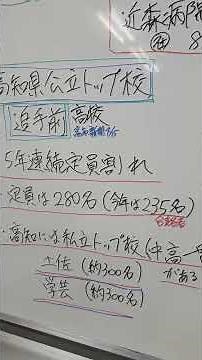 近森病院
高知県公立トップ校
追手前高校
5年連続定員割れ
定員は280名(今年は235名)
合格者
・高知には私立トップ校(中高一
土佐(約300名)がある
学芸(約300名)